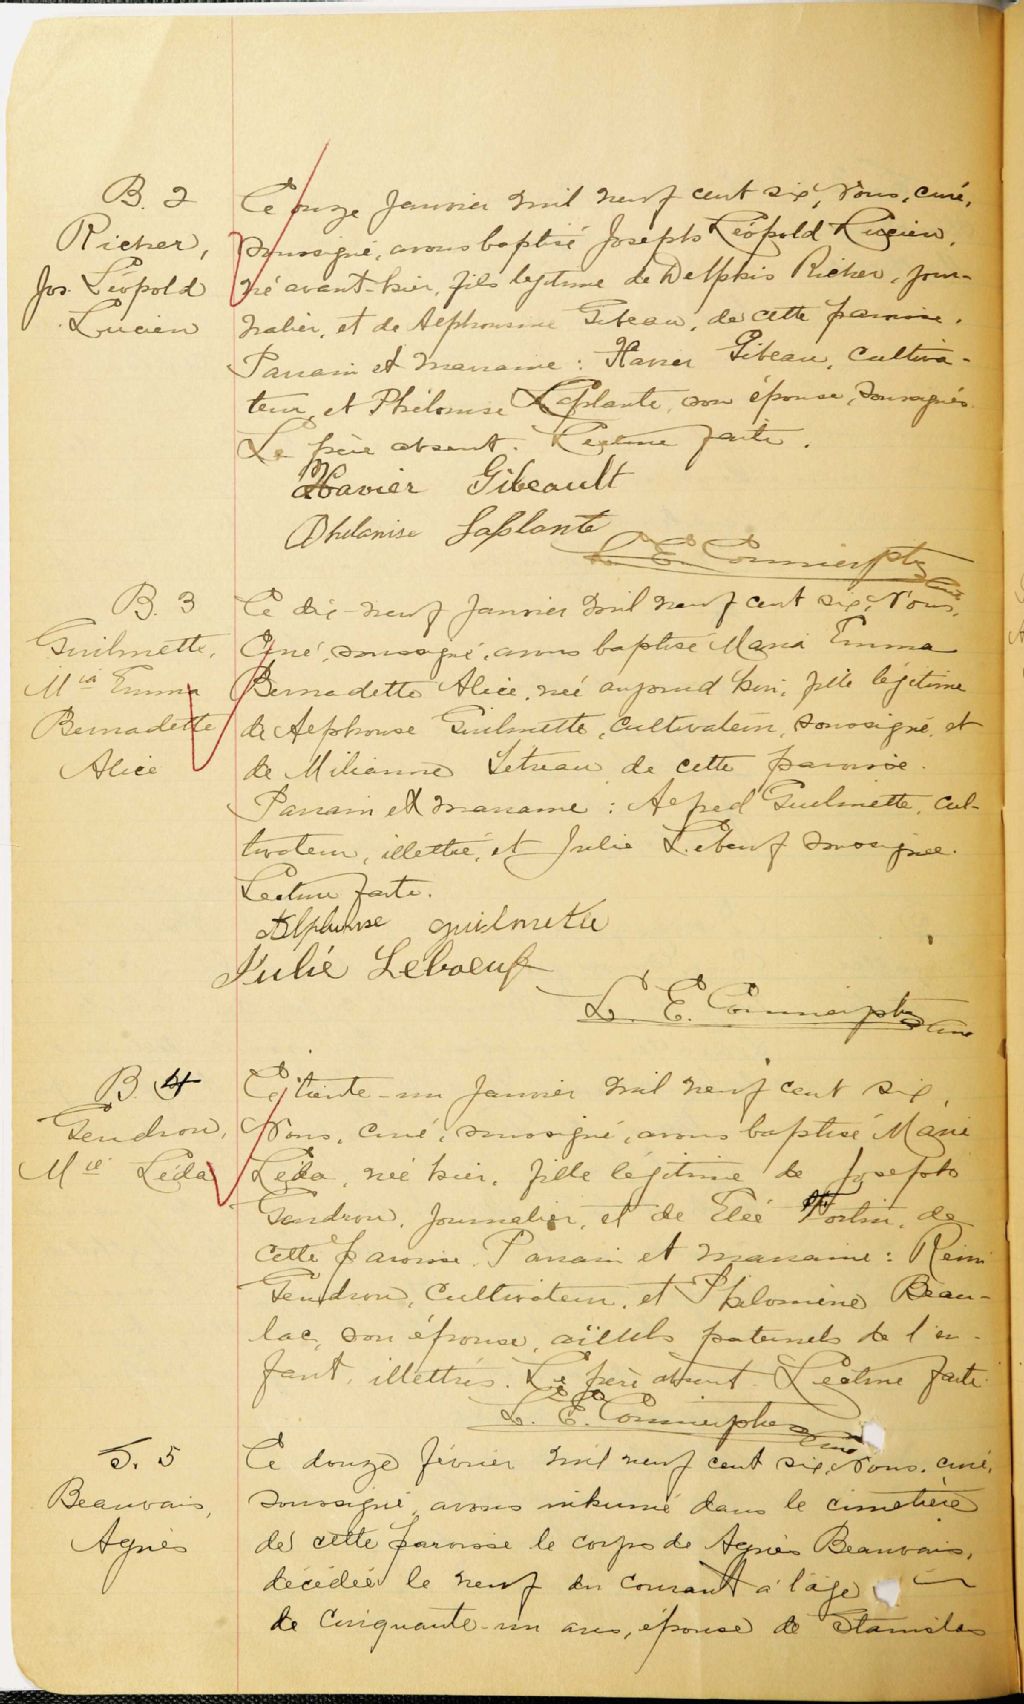 B. 2
Richer,
Jos. Léopold
Lucien
Le onze Janvier mil neuf cent six, Nous, curé,
soussigné, avons baptisé Joseph Léopold Lucien,
né avant-hier, fils légitime de Delphis Richer, jour-
nalier, et de Alphonsine Gibeau, de cette paroisse.
Parrain et marraine : Xavier Gibeau, cultiva-
teur, et Philomise Laplante, son épouse, soussignés.
Le père absent. Lecture faite.
Xavier Gibeault
Philanise Laplante
L. E. ptre
curé
B. 3
Guilmette,
Mia Emma
Bernadette
Alice
Le dix-neuf Janvier mil neuf cent six, Nous,
Curé, soussigné, avons baptisé Maria Emma
Bernadette Alice, née aujourd'hui, fille légitime
de Alphonse Guilmette, cultivateur, soussigné, et
de Milianne Letreau de cette paroisse.
Parrain et marraine : Alfred Guilmette, cul-
tivateur, illettré, et Julie Lebeuf soussignée.
Lecture faite.
Alphonse guilmette
Julie Leboeuf
L. E. ptre
curé
B. 4
Gendron,
Mie Léda
Le trente-un Janvier mil neuf cent six,
Nous, curé, soussigné, avons baptisé Marie
Léda, née hier, fille légitime de Joseph
Gendron, journalier, et de Fortin, de
cette paroisse. Parrain et marraine : Rémi
Gendron, cultivateur, et Philomène Beau-
lac, son épouse, aïeuls paternels de l'en-
fant, illettrés. Le père absent. Lecture faite.
L. E. ptre
curé
S. 5
Beauvais,
Agnès
Le douze février mil neuf cent six, Nous, curé,
soussigné, avons inhumé dans le cimetière
de cette paroisse le corps de Agnès Beauvais,
décédée le neuf du courant à l'âge
de cinquante-un ans, épouse de Stanislas